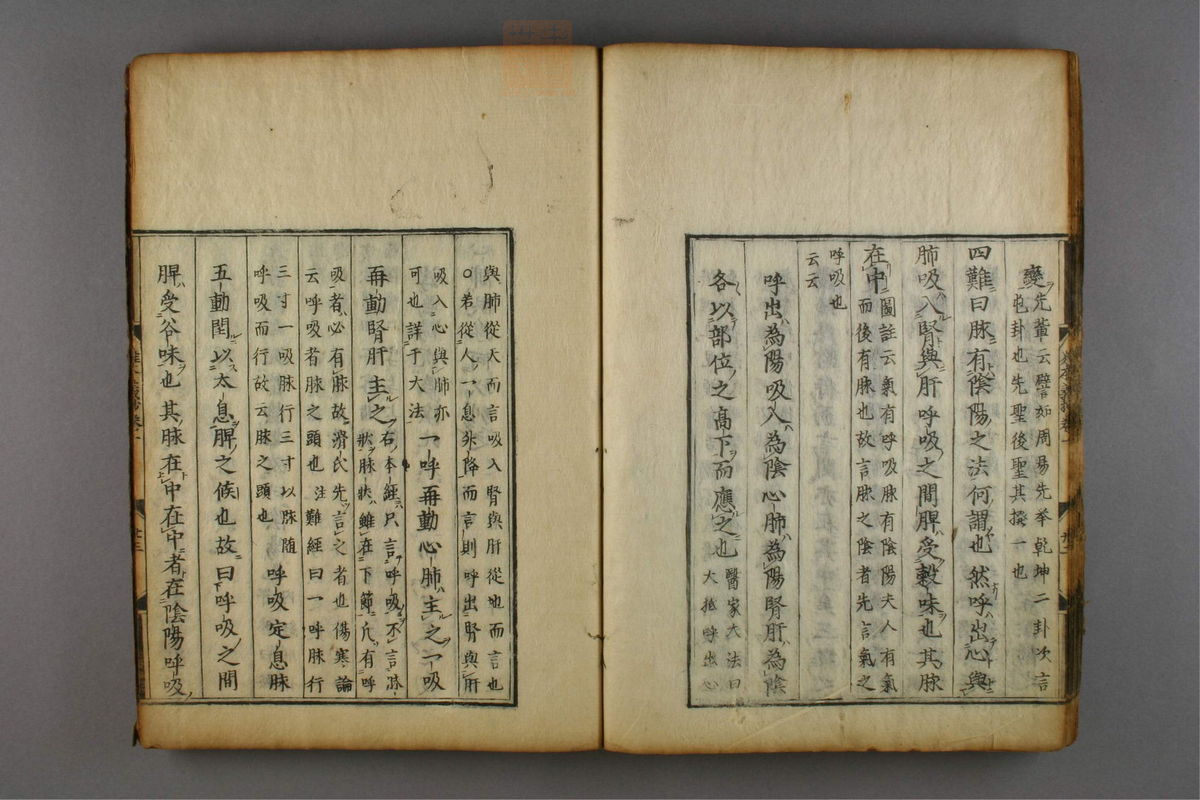 變先輩云譬如周易先挙乾坤二卦次言
包卦也先聖後聖其揆一也
四難曰脉有陰陽之法何謂也然呼出心與
肺吸入腎與肝呼吸之間脾受穀味也其脉
在中圖註云氣有呼吸脉有陰陽夫人有氣
而後有脉也故言脉之陰者先言氣之
呼吸也
云云
呼出為陽吸入為陰心肺為陽腎肝為陰
各以部位之高下而應之也醫家大法曰
大抵呼出心
與肺從天而言吸入腎與肝從地而言也
○若從人一息升降而言則呼出腎與肝
吸入心與肺亦
可也詳于大法
一呼再動心肺主之一吸
再動腎肝主之右本經只言呼吸不言脉
狀脉狀雖在下節凢有呼
吸者必有脉故滑氏先言之者也傷寒論
云呼吸者脉之頭也注難經曰一呼脉行
三寸一吸脉行三寸以脉随
呼吸而行故云脉之頭也
呼吸定息脉
五動閏以太息脾之候也故曰呼吸之間
脾受谷味也其脉在中在中者在陰陽呼吸
廿三